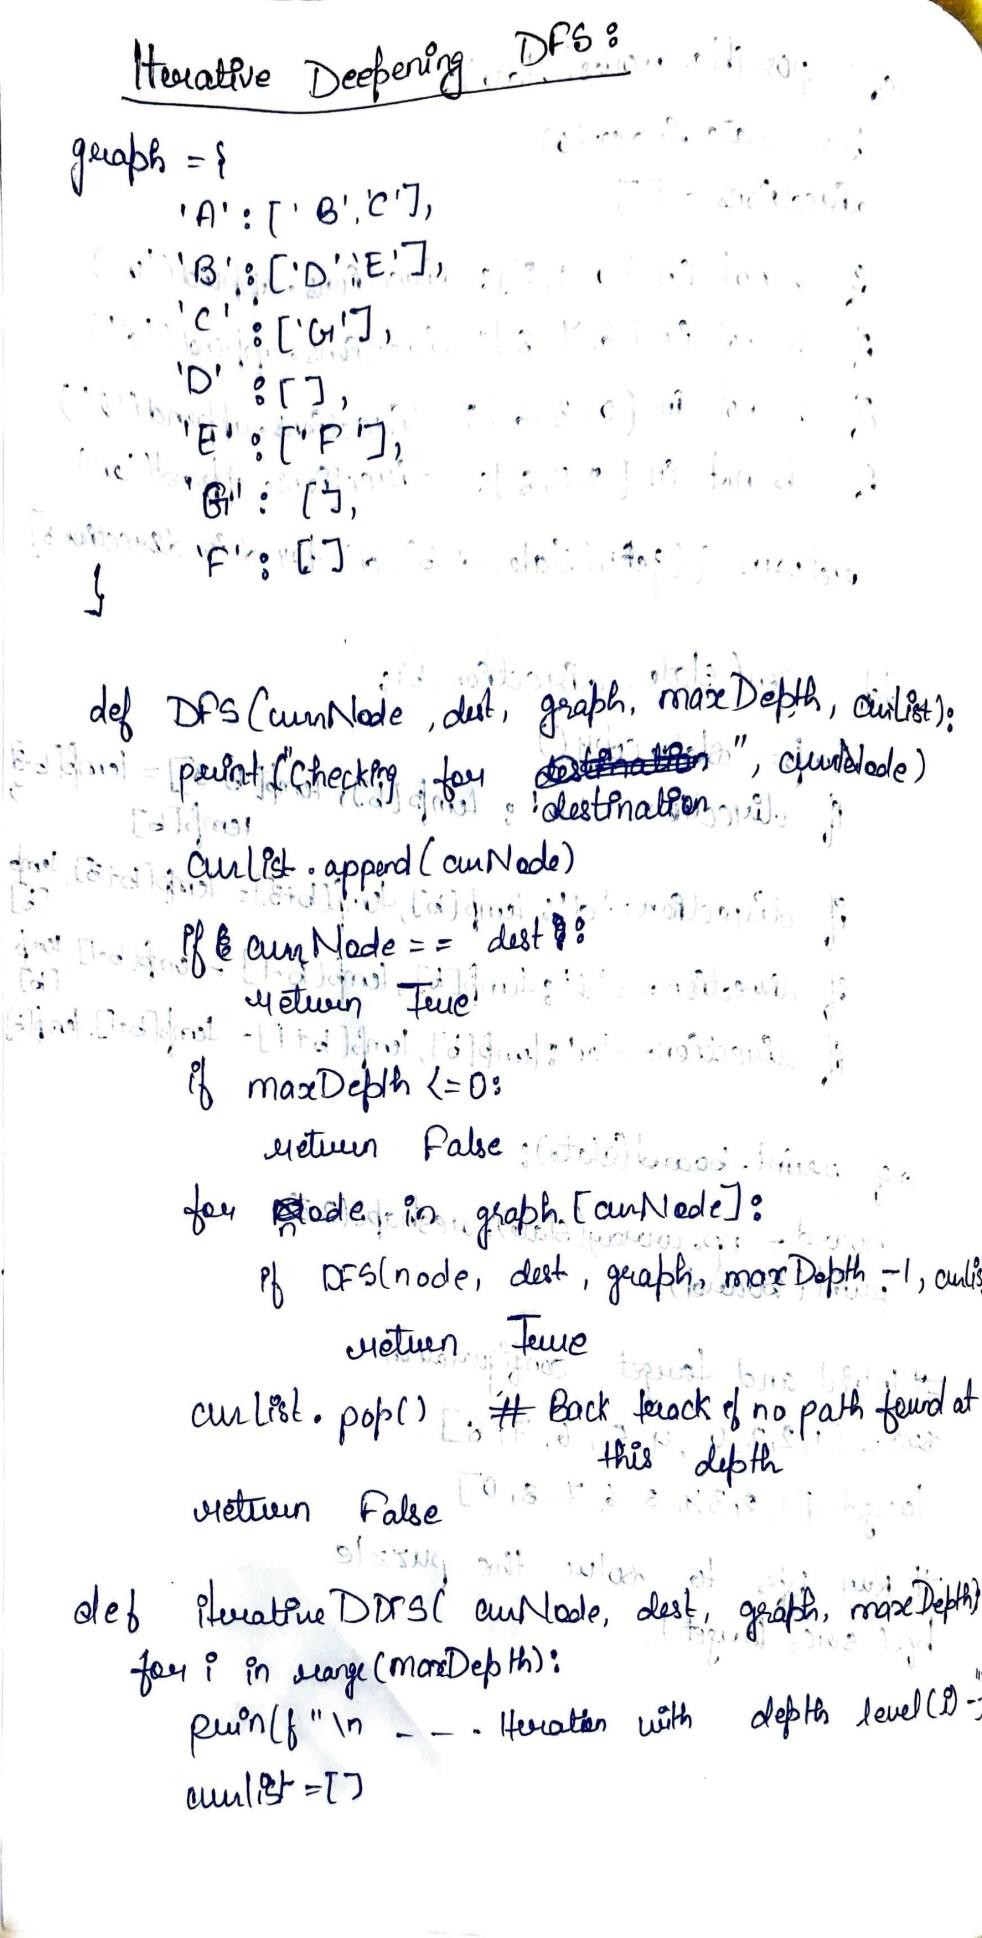 Iterative Deepening DFS:
graph = {
'A' : ['B', 'C'],
'B' : ['D', 'E'],
'C' : ['G'],
'D' : [],
'E' : ['F'],
'G' : [],
'F' : []
}
def DFS(currNode, dest, graph, maxDepth, curList):
print("Checking for destination", currNode)
curList.append(curNode)
if currNode == 'dest':
return True
if maxDepth <=0:
return False
for node in graph[curNode]:
if DFS(node, dest, graph, maxDepth -1, curlis
return True
curlist.pop() # Back track if no path found at
this depth
return False
def iterativeDDFS( curNode, dest, graph, maxDepth)
for i in range(maxDepth):
prin(f"\n - - - Iteration with depth level(i) -
curlist = []